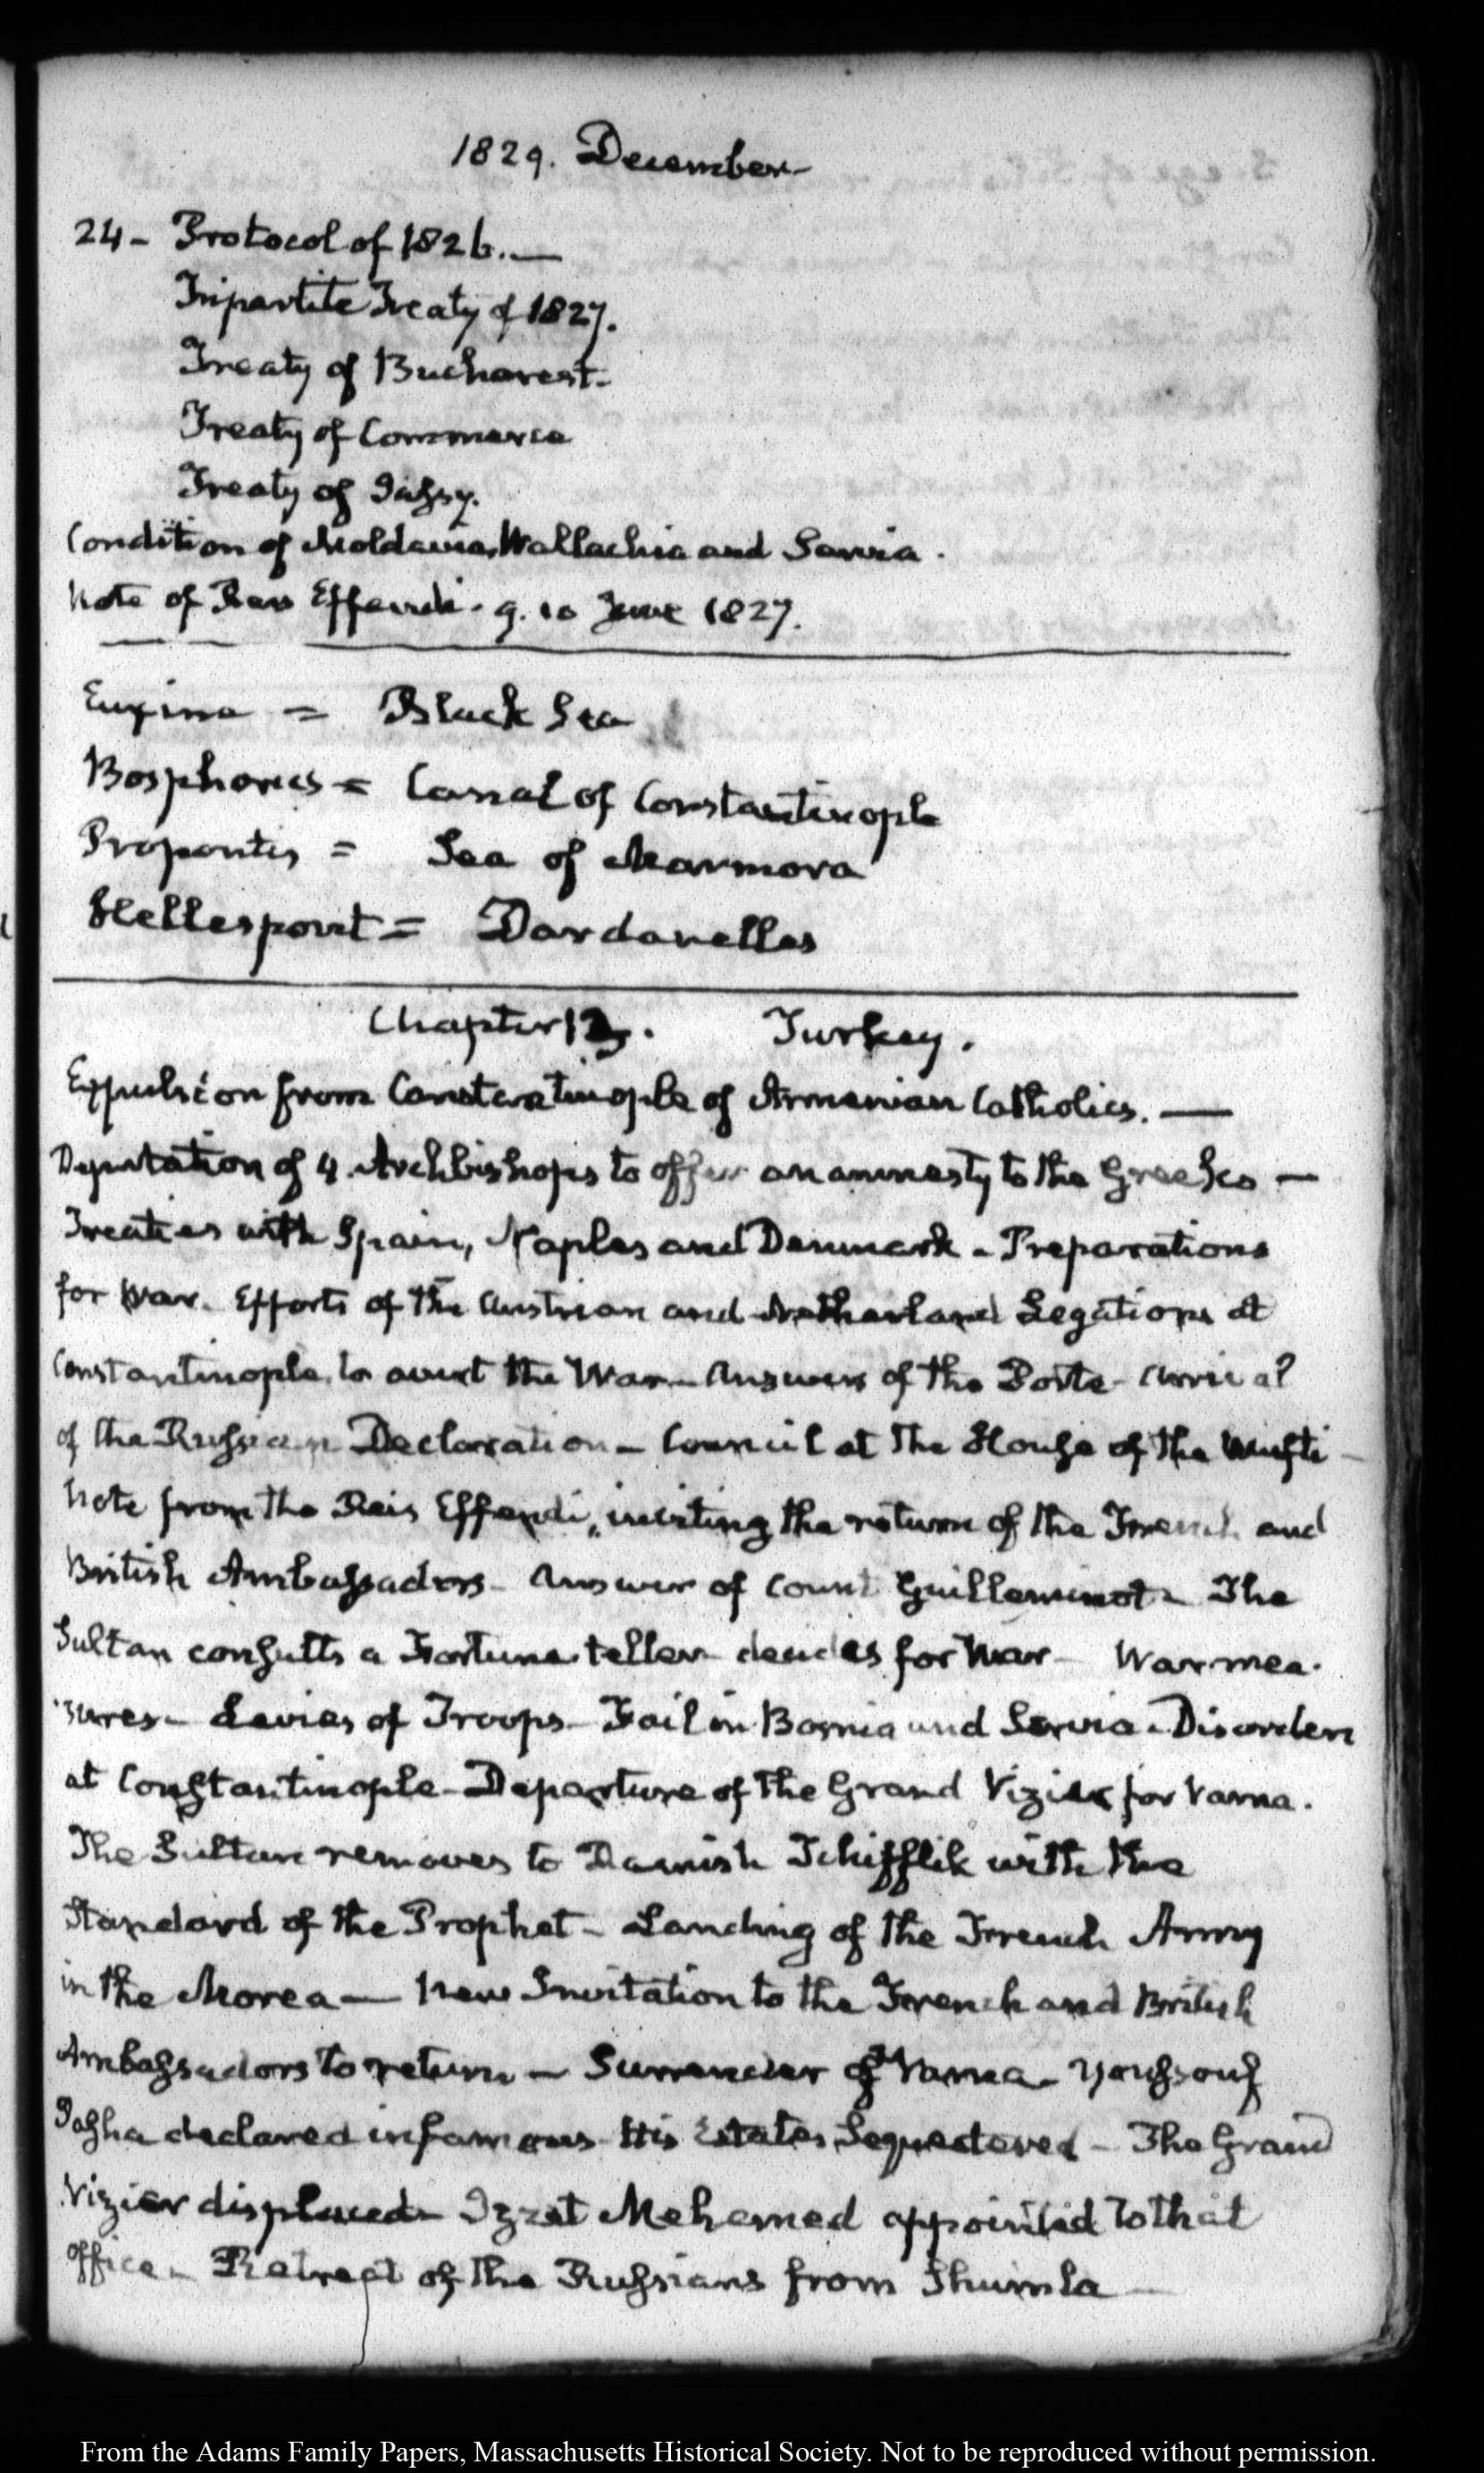 1829. December.
24 - Protocol of 1826. —
Tripartite Treaty of 1827.
Treaty of Bucharest.
Treaty of Commerce
Treaty of Jassy.
Condition of Moldavia, Wallachia and Servia.
Note of Reis Effendi. 9. 10 June 1827.
Euxine = Black Sea
Bosphorus = Canal of Constantinople
Propontis = Sea of Marmora
Hellespont = Dardanelles
Chapter 13. Turkey.
Expulsion from Constantinople of Armenian Catholics. —
Deputation of 4 Archbishops to offer an amnesty to the Greeks —
Treaties with Spain, Naples and Denmark - Preparations
for War. Efforts of the Austrian and Netherland Legations at
Constantinople, to avert the War - Answers of the Porte - Arrival
of the Russian Declaration - Council at the House of the Mufti -
Note from the Reis Effendi, inviting the return of the French and
British Ambassadors - Answer of Count Guilleminot - The
Sultan consults a Fortune teller - decides for War - War mea-
sures - Levies of Troops - Fail in Bosnia and Servia - Disorders
at Constantinople - Departure of the Grand Vizier for Varna.
The Sultan removes to Tchifflik with the
Standard of the Prophet - Landing of the French Army
in the Morea — New Invitation to the French and British
Ambassadors to return - Surrender of Varna - Youssouf
Pasha declared infamous - His Estates Sequestered - The Grand
Vizier displaced - Izzet Mehemed appointed to that
office - Retreat of the Russians from Shumla —
From the Adams Family Papers, Massachusetts Historical Society. Not to be reproduced without permission.